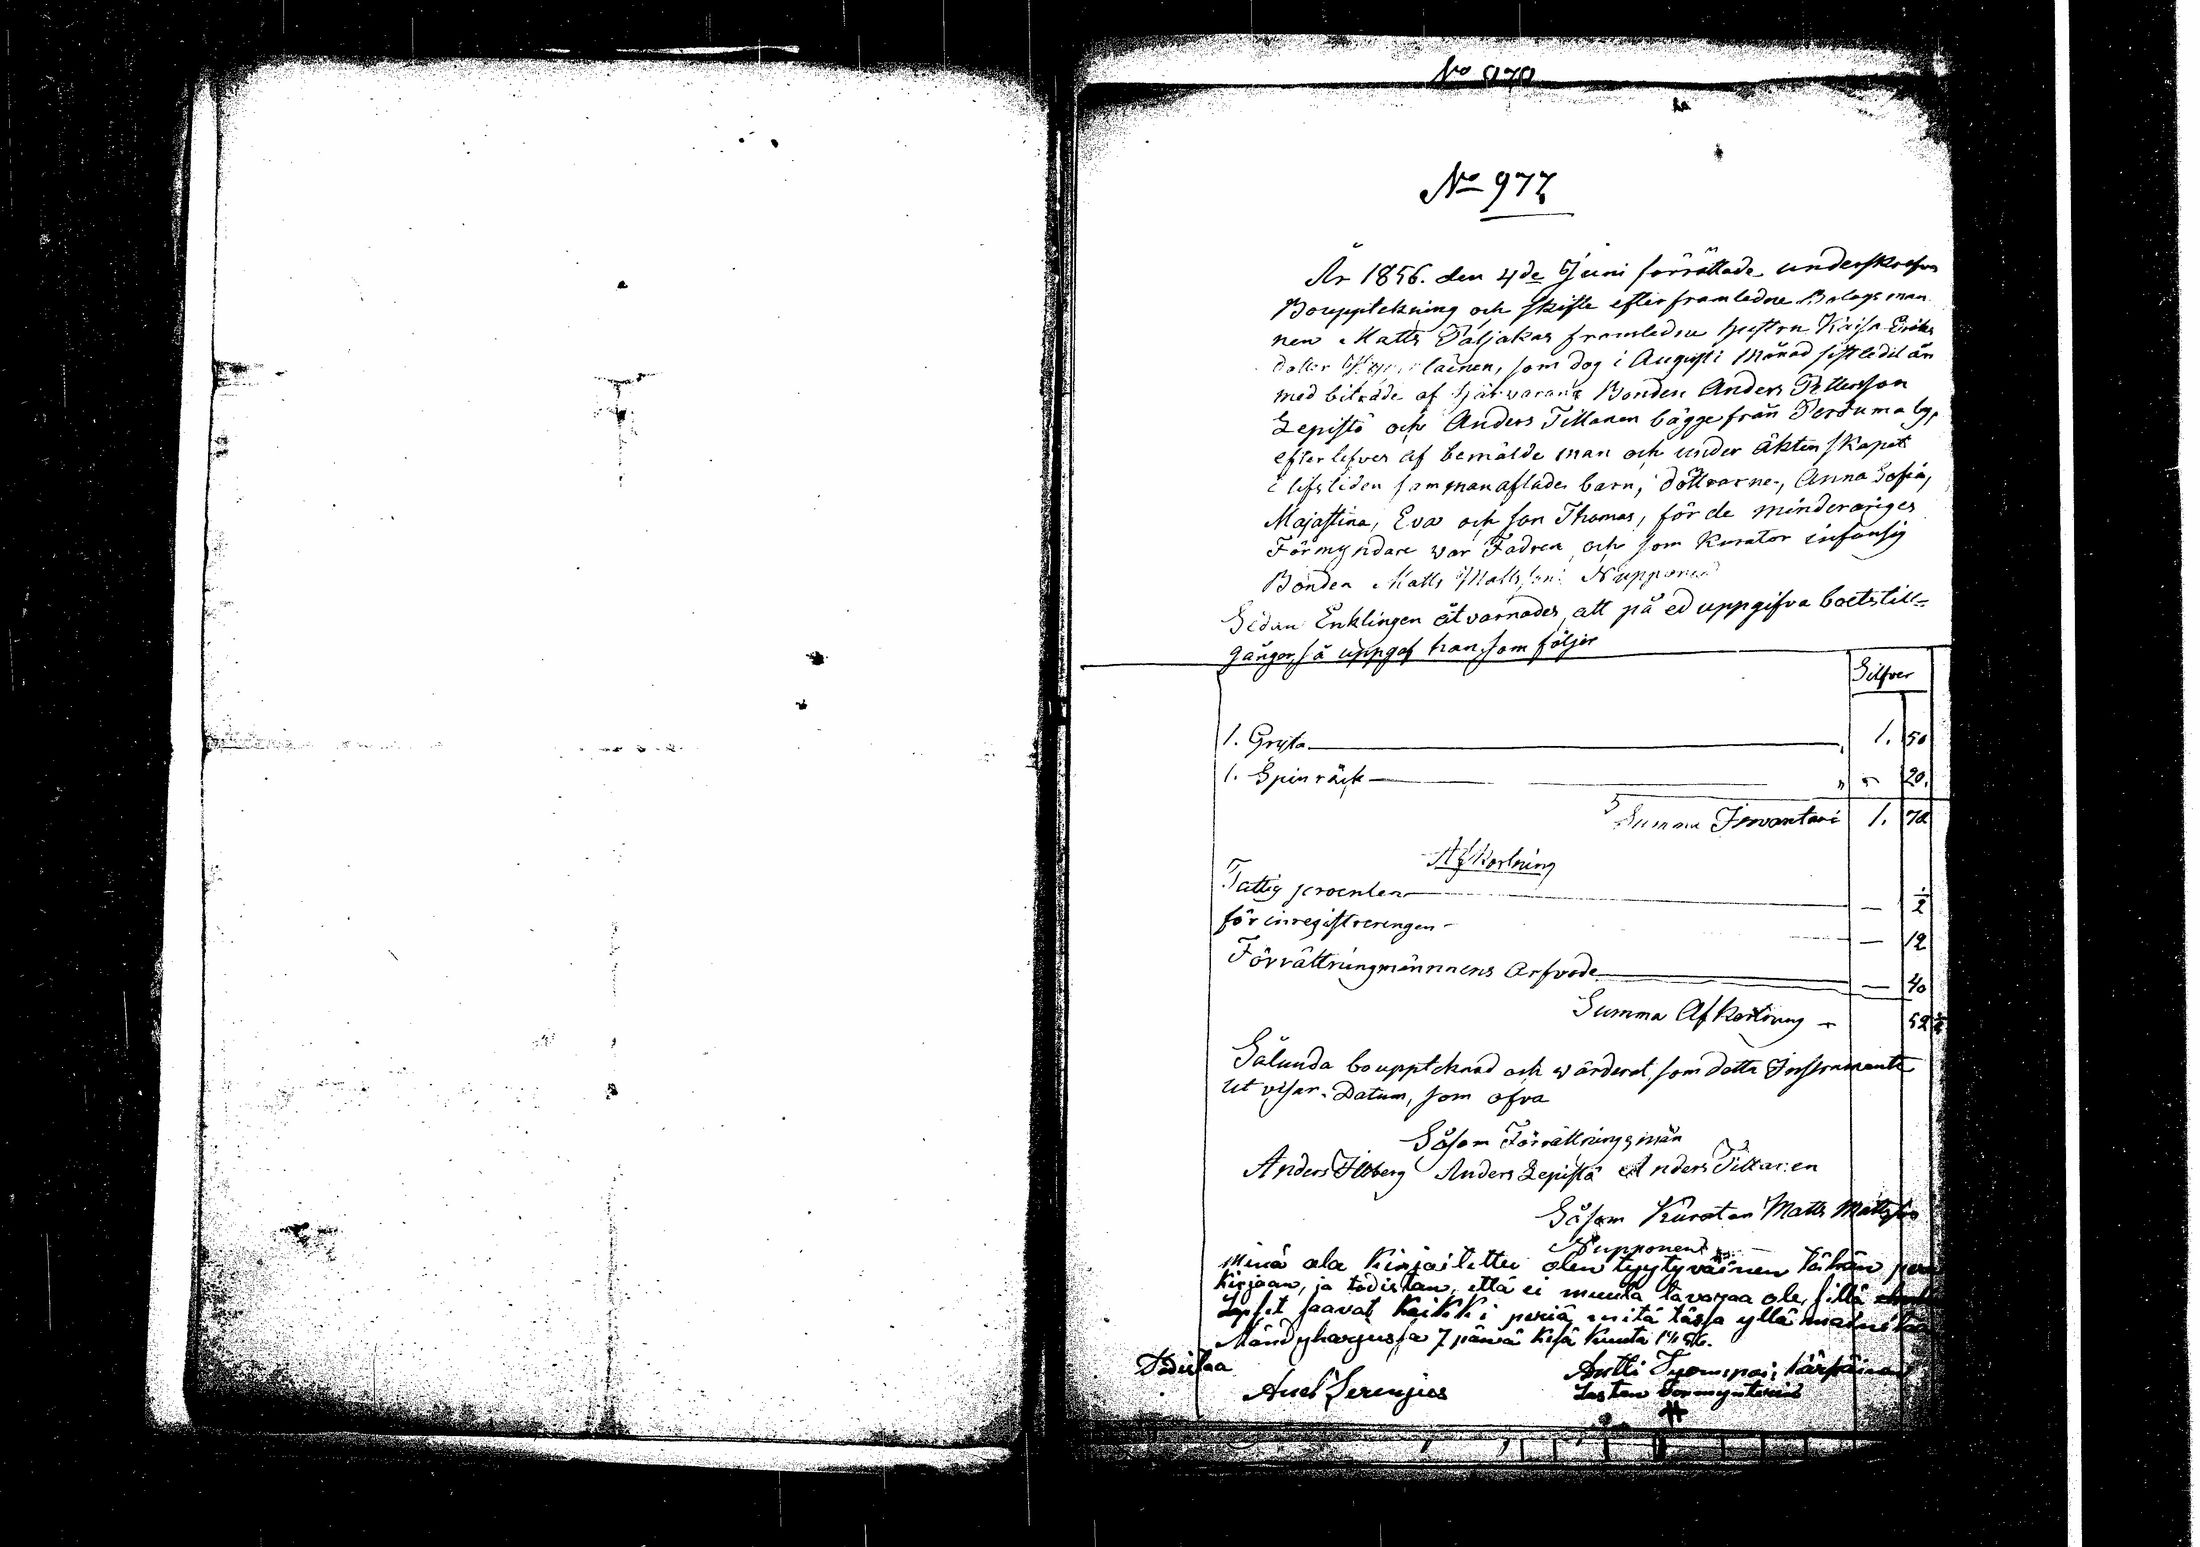 No 979
No 977
År 1856. den 4de Juni förrättade underskrefne
Bouppteckning och skifte efter framledne Bolagsman
nen Matts Paljakas framledne hustru Kaisa Eriks
dotter som dog i Augusti Månad sistledit år
med biträde af Bonden Anders Pettersson
Lepistö och Anders Tillanen bägge från Pertuma by,
efterlefver af bemälde man och under äktenskapet
i lifstiden sammanaflade barn, döttrarne, Anna Sofia,
Majastina, Eva och son Thomas, för de minderåriges
Förmyndare var Fadren och som Kurator infansig
Bonden Matts Mattsson Nupponen
Sedan Enklingen åtvarnades att på ed uppgifva boetstill-
gånger, så uppgaf han som följer
Silfver
1. Gryta 1. 50
1. Spinräck " " 20.
Summa Inwantari 1. 70
Afkortning
Fattig procenten — 1/2
för inregistreringen — 12
Förrättningmännnens Arfvode — 40
Summa Afkortning - 52 1/2
Sålunda bouppteknad och wärderat, som detta Instrumente
utvisar. Datum, som ofva
Såsom Förrättningsmän
Anders Anders Lepistö Anders Tillanen
Såsom Kurator Matts Mattsson
Nupponen
Minä ala kirjoitettu olen tyytyväinen tähän peru
kirjaan, ja todistan, että ei muuta tavaraa ole, sillä
Lapset saavat kaikki periä mitä tässa yllä mainitan
Mändyharjussa 7 päivä Kesä Kuuta 1856.
Todistaa Antti
Axel Serenjus Lasten Formynterinä